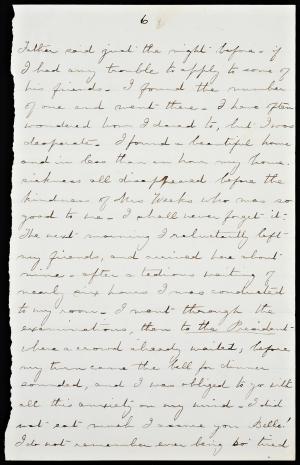 6
Father said just the night before - if
I had any trouble to apply to some of
his friends - I found the number
of one and went there - I have often
wondered how I dared to, but I was
desperate - I found a beautiful home
and in less than an hour my home
sickness all disappeared before the
kindness of Mrs Weeks who was so
good to me - I shall never forget it -
The next morning I reluctantly left
my friends, and arrived here about
nine - after a tedious waiting of
nearly six hours I was conducted
to my room - I went through the
examinations, then to the President
where a crowd already waited, before
my turn came the bell for dinner
sounded, and I was obliged to go with
all this anxiety on my mind - I did
not eat much I assure you Belle!
I do not remember ever being so tired